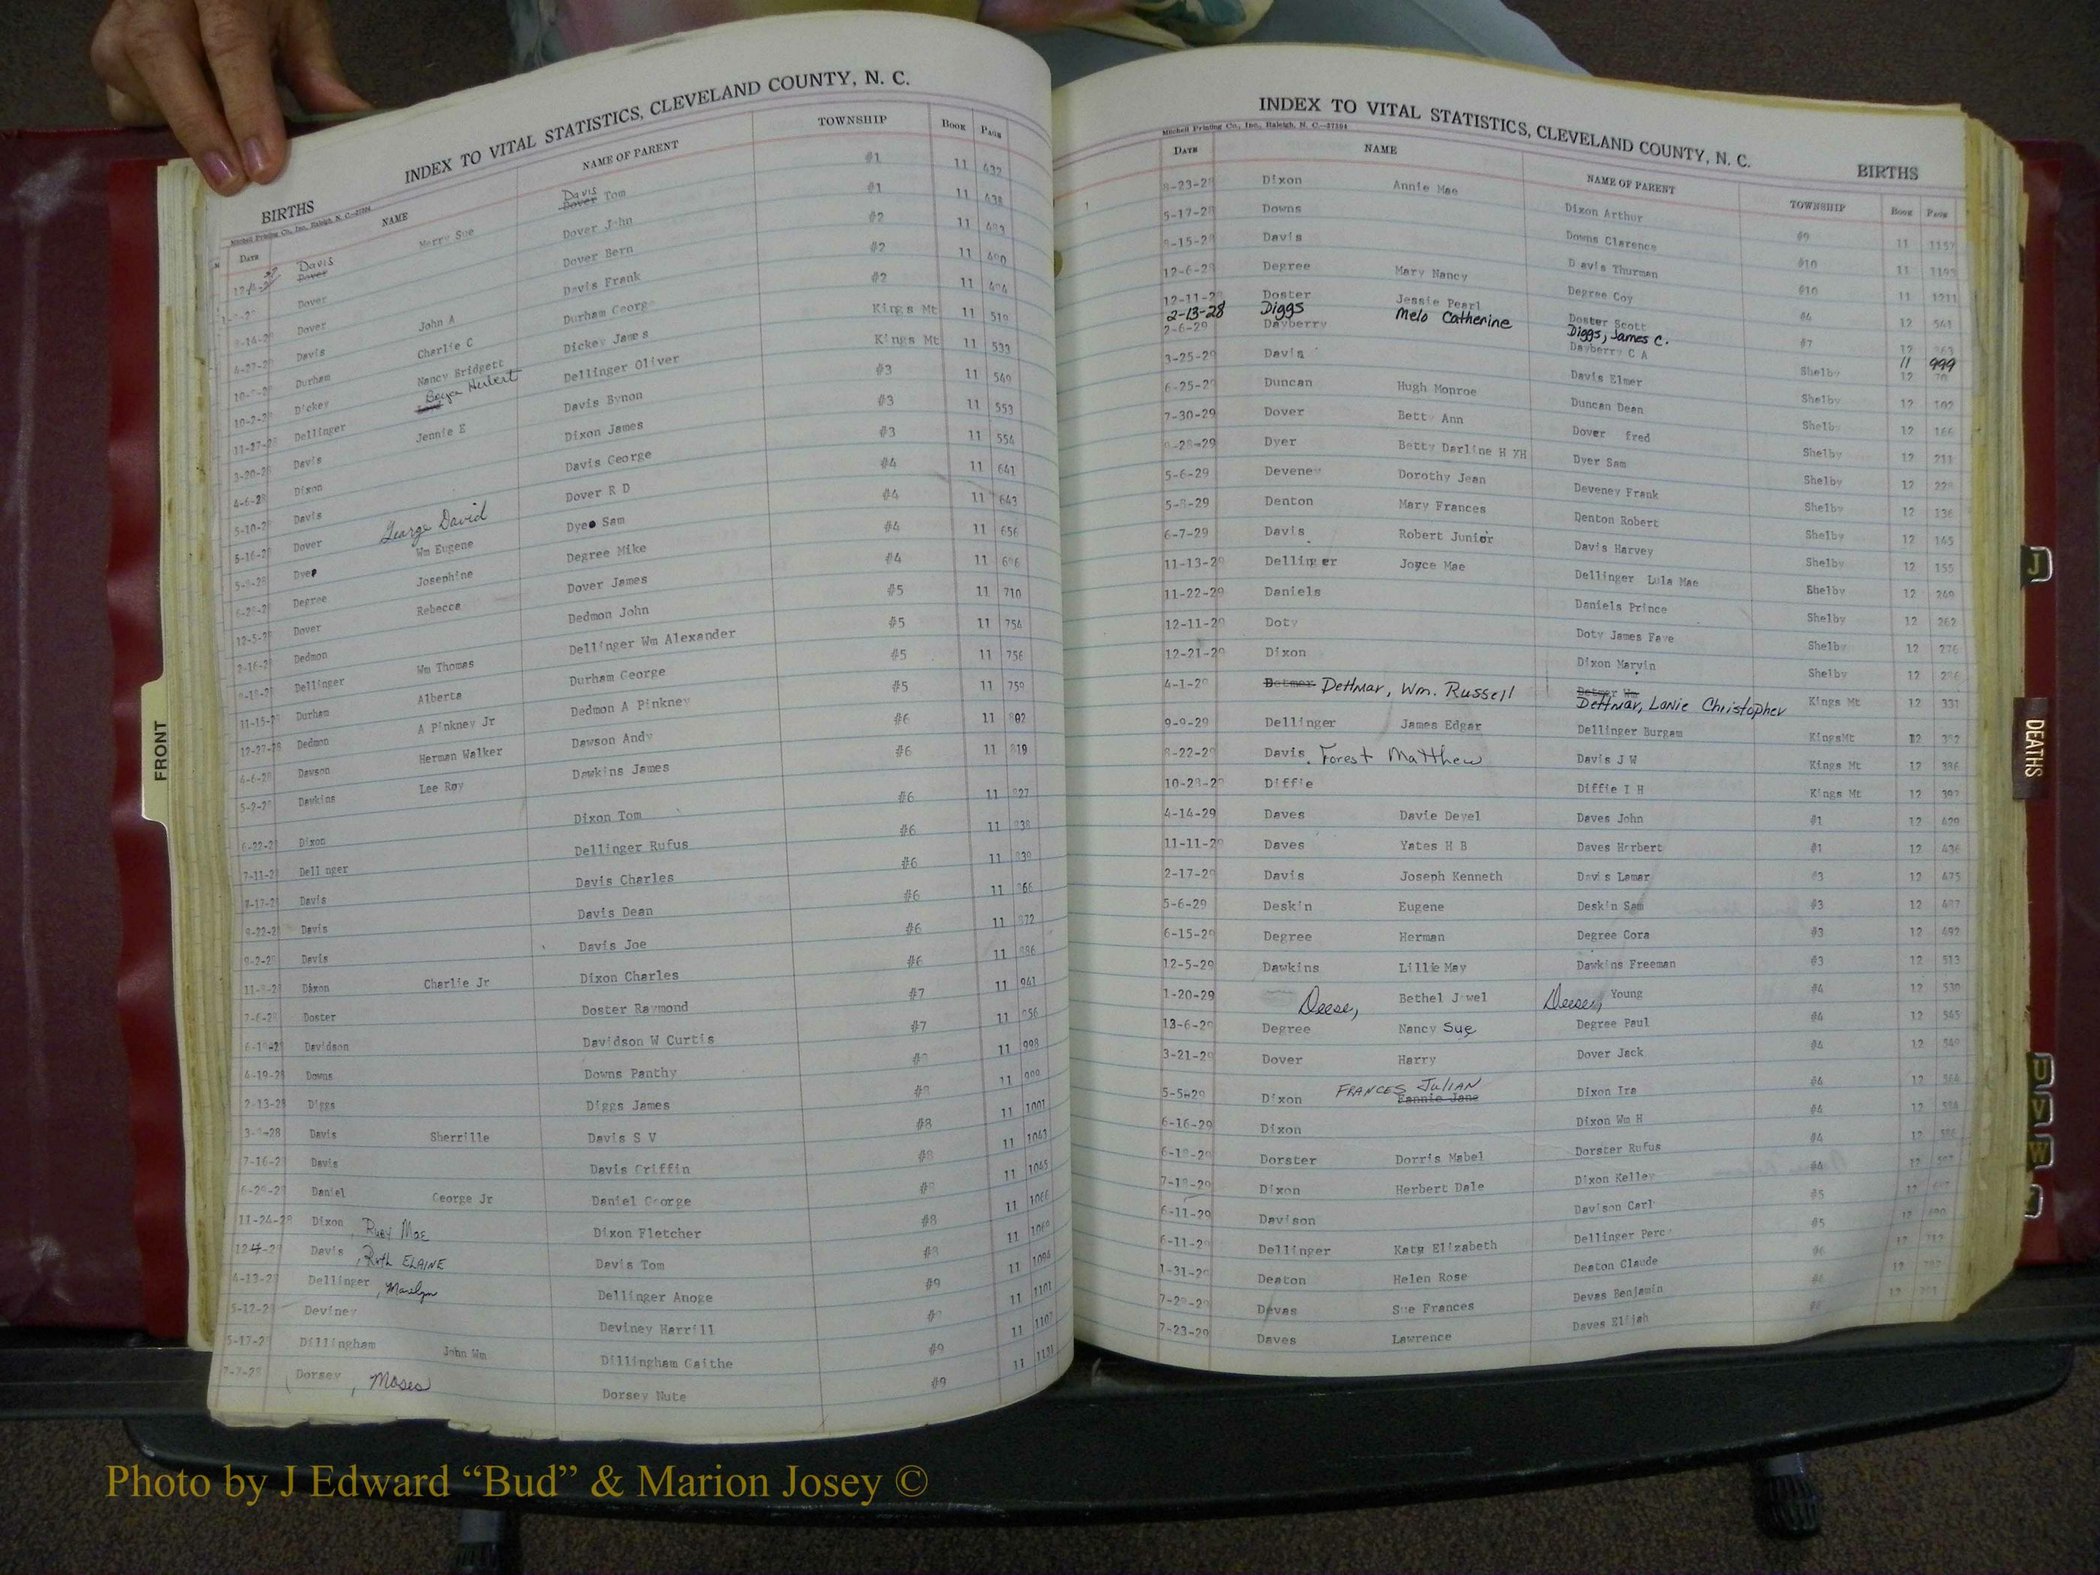 INDEX TO VITAL STATISTICS, CLEVELAND COUNTY, N. C.
BIRTHS
Mitchell Printing Co., Inc., Raleigh, N. C.—27594
DATE NAME NAME OF PARENT TOWNSHIP BOOK PAGE
Davis Dover Merry Sue Davis Dover Tom #1 11 432
Dover Dover John #1 11 438
Dover John A Dover Bern #2 11
Davis Charlie C Davis Frank #2 11
Durham Nancy Bridgett Durham George #2 11
Dickey Boyce Herbert Dickey James Kings Mt 11 519
11-27-28 Dellinger Jennie E Dellinger Oliver Kings Mt 11 533
3-20-28 Davis Davis Bynon #3 11 549
4-6-28 Dixon Dixon James #3 11 553
5-10-2 Davis Davis George #3 11 554
5-16-2 Dover George David Dover R D #4 11 641
5-8-28 Dyer Wm Eugene Dyer Sam #4 11 643
Degree Josephine Degree Mike #4 11 656
12-5-2 Dover Rebecca Dover James #4 11
2-16-2 Dedmon Dedmon John #5 11 710
Dellinger Wm Thomas Dellinger Wm Alexander #5 11 754
11-15-2 Durham Alberta Durham George #5 11 756
12-27-28 Dedmon A Pinkney Jr Dedmon A Pinkney #5 11 759
4-6-28 Dawson Herman Walker Dawson Andy #6 11 802
5-2-2 Dawkins Lee Roy Dawkins James #6 11 819
6-22-2 Dixon Dixon Tom #6 11 827
7-11-2 Dellinger Dellinger Rufus #6 11
Davis Davis Charles #6 11
9-22-2 Davis Davis Dean #6 11
9-2-2 Davis Davis Joe #6 11
Dixon Charlie Jr Dixon Charles #6 11
7-6-28 Doster Doster Raymond #7 11 941
Davidson Davidson W Curtis #7 11
4-19-28 Downs Downs Panthy 11 998
2-13-28 Diggs Diggs James #8 11 999
Davis Sherrille Davis S V #8 11 1001
7-16-2 Davis Davis Griffin #8 11 1043
6-29-2 Daniel George Jr Daniel George 11 1045
11-24-28 Dixon, Ruby Mae Dixon Fletcher #8 11 1066
Davis, Ruth ELAINE Davis Tom #8 11 1069
4-13-2 Dellinger, Marilyn Dellinger Anoge #9 11 1094
5-12-2 Deviney Deviney Harrill 11 1101
5-17-2 Dillingham John Wm Dillingham Gaithe #9 11 1107
Dorsey, Moses Dorsey Nute #9 11 1131
INDEX TO VITAL STATISTICS, CLEVELAND COUNTY, N. C.
BIRTHS
Mitchell Printing Co., Inc., Raleigh, N. C.—27594
DATE NAME NAME OF PARENT TOWNSHIP BOOK PAGE
8-23-2 Dixon Annie Mae Dixon Arthur #9 11 1157
5-17-2 Downs Downs Clarence #10 11 1193
Davis Davis Thurman #10 11 1211
12-6-2 Degree Mary Nancy Degree Coy #4 12 541
12-11-2 Doster Jessie Pearl Doster Scott #7 12
2-13-28 Diggs Melo Catherine Diggs, James C. 11 999
2-6-29 Dayberry Dayberry C A Shelby 12
3-25-29 Davis Davis Elmer Shelby 12 102
6-25-2 Duncan Hugh Monroe Duncan Dean Shelby 12 166
7-30-29 Dover Betty Ann Dover fred Shelby 12 211
Dyer Betty Darline H YH Dyer Sam Shelby 12
5-6-29 Deveney Dorothy Jean Deveney Frank Shelby 12 136
5-8-29 Denton Mary Frances Denton Robert Shelby 12 145
6-7-29 Davis Robert Junior Davis Harvey Shelby 12 155
11-13-29 Dellinger Joyce Mae Dellinger Lula Mae Shelby 12 249
11-22-29 Daniels Daniels Prince Shelby 12 262
12-11-29 Doty Doty James Faye Shelby 12 276
12-21-29 Dixon Dixon Marvin Shelby 12
4-1-29 Detmer Dettmar, Wm. Russell Detmer Wm Dettmar, Lonie Christopher Kings Mt 12 331
9-9-29 Dellinger James Edgar Dellinger Burgam KingsMt 12
8-22-29 Davis, Forest Matthew Davis J W Kings Mt 12
Diffie Diffie I H Kings Mt 12
4-14-29 Daves Davie Devel Daves John #1 12 429
11-11-29 Daves Yates H B Daves Herbert #1 12 436
2-17-29 Davis Joseph Kenneth Davis Lamar #3 12 475
5-6-29 Deskin Eugene Deskin Sam #3 12
6-15-29 Degree Herman Degree Cora #3 12 492
12-5-29 Dawkins Lillie May Dawkins Freeman #3 12 513
1-20-29 Deese, Bethel Jewel Deese, Young #4 12 530
Degree Nancy Sue Degree Paul #4 12 545
3-21-29 Dover Harry Dover Jack #4 12
5-5-29 Dixon FRANCES JULIAN Fannie Jane Dixon Ira #4 12
6-16-29 Dixon Dixon Wm H #4 12
Dorster Dorris Mabel Dorster Rufus #4 12
Dixon Herbert Dale Dixon Kelley #4 12
6-11-29 Davison Davison Carl #5 12
6-11-29 Dellinger Katy Elizabeth Dellinger Perc #5 12
1-31-29 Deaton Helen Rose Deaton Claude #6 12
Devas Sue Frances Devas Benjamin 12
7-23-29 Daves Lawrence Daves Elijah
FRONT
J
DEATHS
U
V
W
Photo by J Edward “Bud” & Marion Josey ©